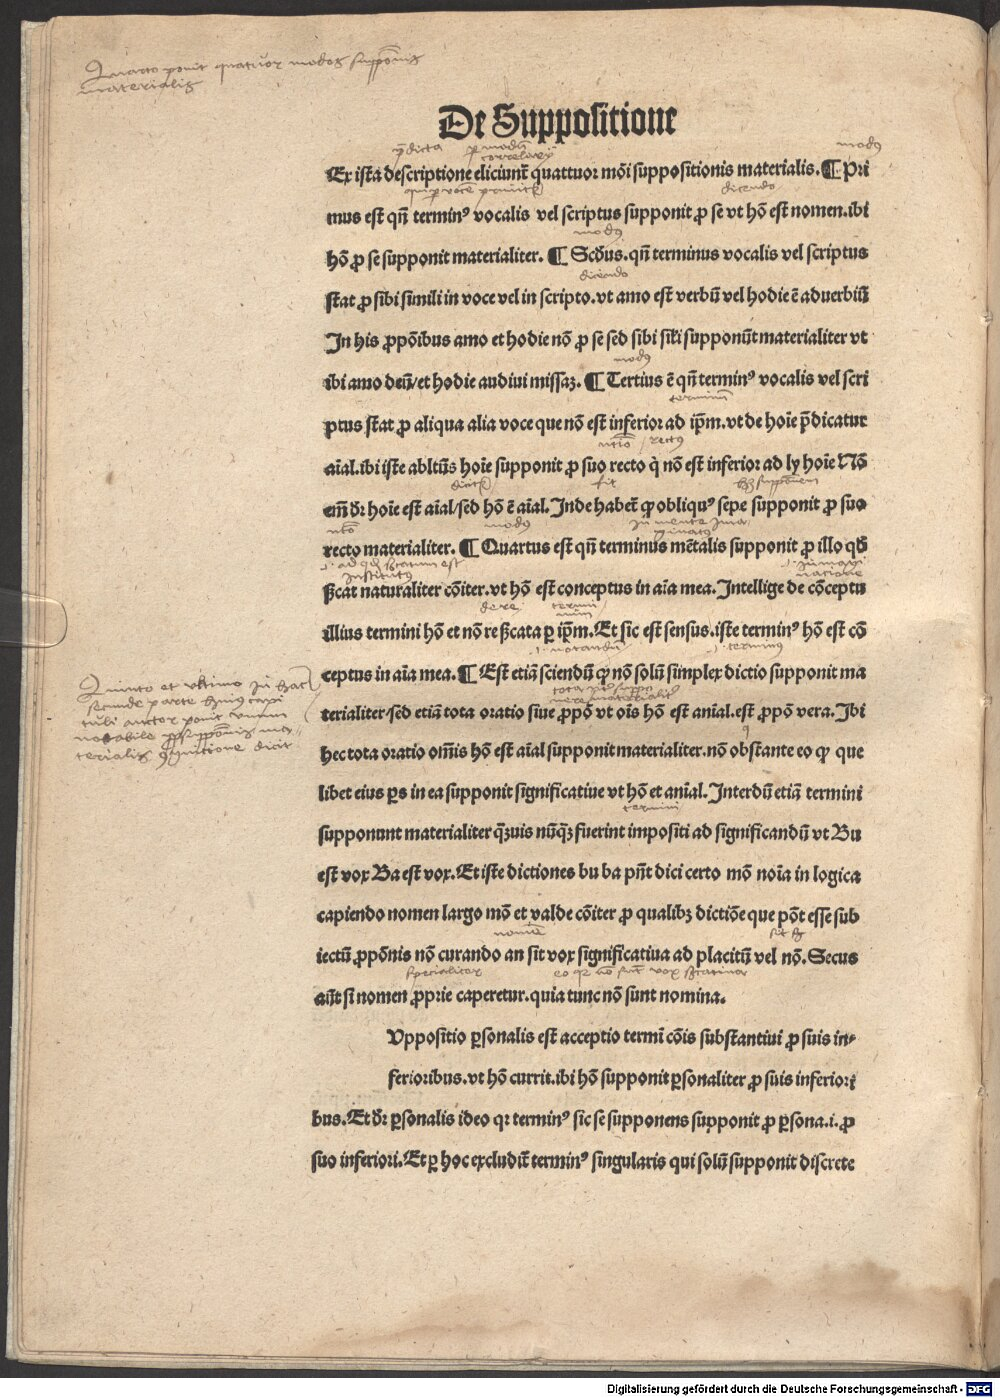 Quarto ponit quatuor modos supponis
materialis
De Suppositione
p̄dicta per modū correlarij modus
Ex ista descriptione eliciunt̄ quattuor mōi suppositionis materialis. ¶ Pri
dicendo
mus est qn̄ terminꝰ vocalis vel scriptus supponit ꝓ se vt hō est nomen. ibi
modus
hō ꝓ se supponit materialiter. ¶ Scd̄us. qn̄ terminus vocalis vel scriptus
dicendo
stat ꝓ sibi simili in voce vel in scripto. vt amo est verbū vel hodie ē aduerbiū
In his ꝓpōibus amo et hodie nō ꝓ se sed sibi sił̄i supponūt materialiter vt
modus
ibi amo deū/ et hodie audiui missaꝫ. ¶ Tertius ē qn̄ terminꝰ vocalis vel scri
terminum
ptus stat ꝓ aliqua alia voce que nō est inferior ad ip̄m. vt de hoīe p̄dicatur
ntō rectus
aīal. ibi iste abltūs hoīe supponit ꝓ suo recto q̇ nō est inferior ad ly hoīe Nō
dicitur sit
em̄ dr̄ hoīe est aīal/ sed hō ē aīal. Inde habet̄ ꝙ obliquꝰ sepe supponit ꝓ suo
ntō modus in mente
recto materialiter. ¶ Quartus est qn̄ terminus mētalis supponit ꝓ illo qđ
institutus
ßcat naturaliter cōiter. vt hō est conceptus in aīa mea. Intellige de cōceptu
de re
illius termini hō et nō re ßcata ꝑ ip̄m. Et sic est sensus. iste terminꝰ hō est cō
notandū terminus
ceptus in aīa mea. ¶ Est etiā sciendū ꝙ nō solū simplex dictio supponit ma
Quinto et vltimo in hac
secunde parte huius capi
tuli auctor ponit vnum
notabile
cognitione dicit
terialiter/ sed etiā tota oratio siue ꝓpō vt oīs hō est anīal. est ꝓpō vera. Ibi
hec tota oratio om̄is hō est aīal supponit materialiter. nō obstante eo ꝙ que
libet eius ꝑs in ea supponit significatiue vt hō et anīal. Interdū etiā termini
termini
supponunt materialiter q̄ꝫuis nūq̄ꝫ fuerint impositi ad significandū vt Bu
est vox Ba est vox. Et iste dictiones bu ba pn̄t dici certo mō noīa in logica
capiendo nomen largo mō et valde cōiter ꝓ qualibꝫ dictiōe que pōt esse sub
iectū ꝓpōnis nō curando an sit vox significatiua ad placitū vel nō. Secus
specialiter eo qꝛ nō sunt vox
aūt si nomen ꝓprie caperetur. quia tunc nō sunt nomina.
Vppositio ꝑsonalis est acceptio termī cōis substantiui ꝓ suis in⸗
ferioribus. vt hō currit. ibi hō supponit ꝑsonaliter ꝓ suis inferiori
bus. Et dr̄ ꝑsonalis ideo qꝛ terminꝰ sic se supponens supponit ꝓ ꝑsona. i. ꝓ
suo inferiori. Et ꝑ hoc excludit̄ terminꝰ singularis qui solū supponit discrete
Digitalisierung gefördert durch die Deutsche Forschungsgemeinschaft - DFG